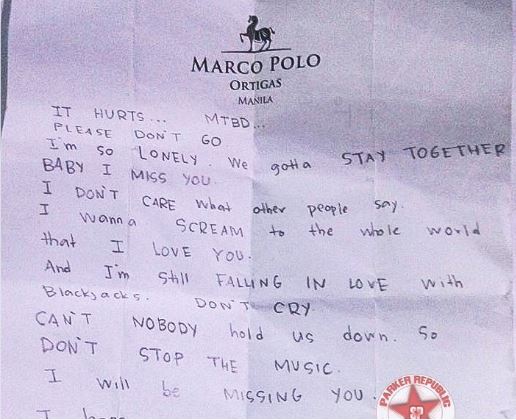 MARCO POLO
ORTIGAS
MANILA
IT HURTS... MTBD...
PLEASE DON'T GO
I'm so LONELY. We gotta STAY TOGETHER
BABY I MISS YOU.
I DON'T CARE what other people say.
I wanna SCREAM to the whole world
that I LOVE YOU.
And I'm still FALLING IN LOVE with
Blackjacks. DON'T CRY
CAN'T NOBODY hold us down. So
DON'T STOP THE MUSIC.
I will be MISSING YOU.
PARKER REPUBLIC